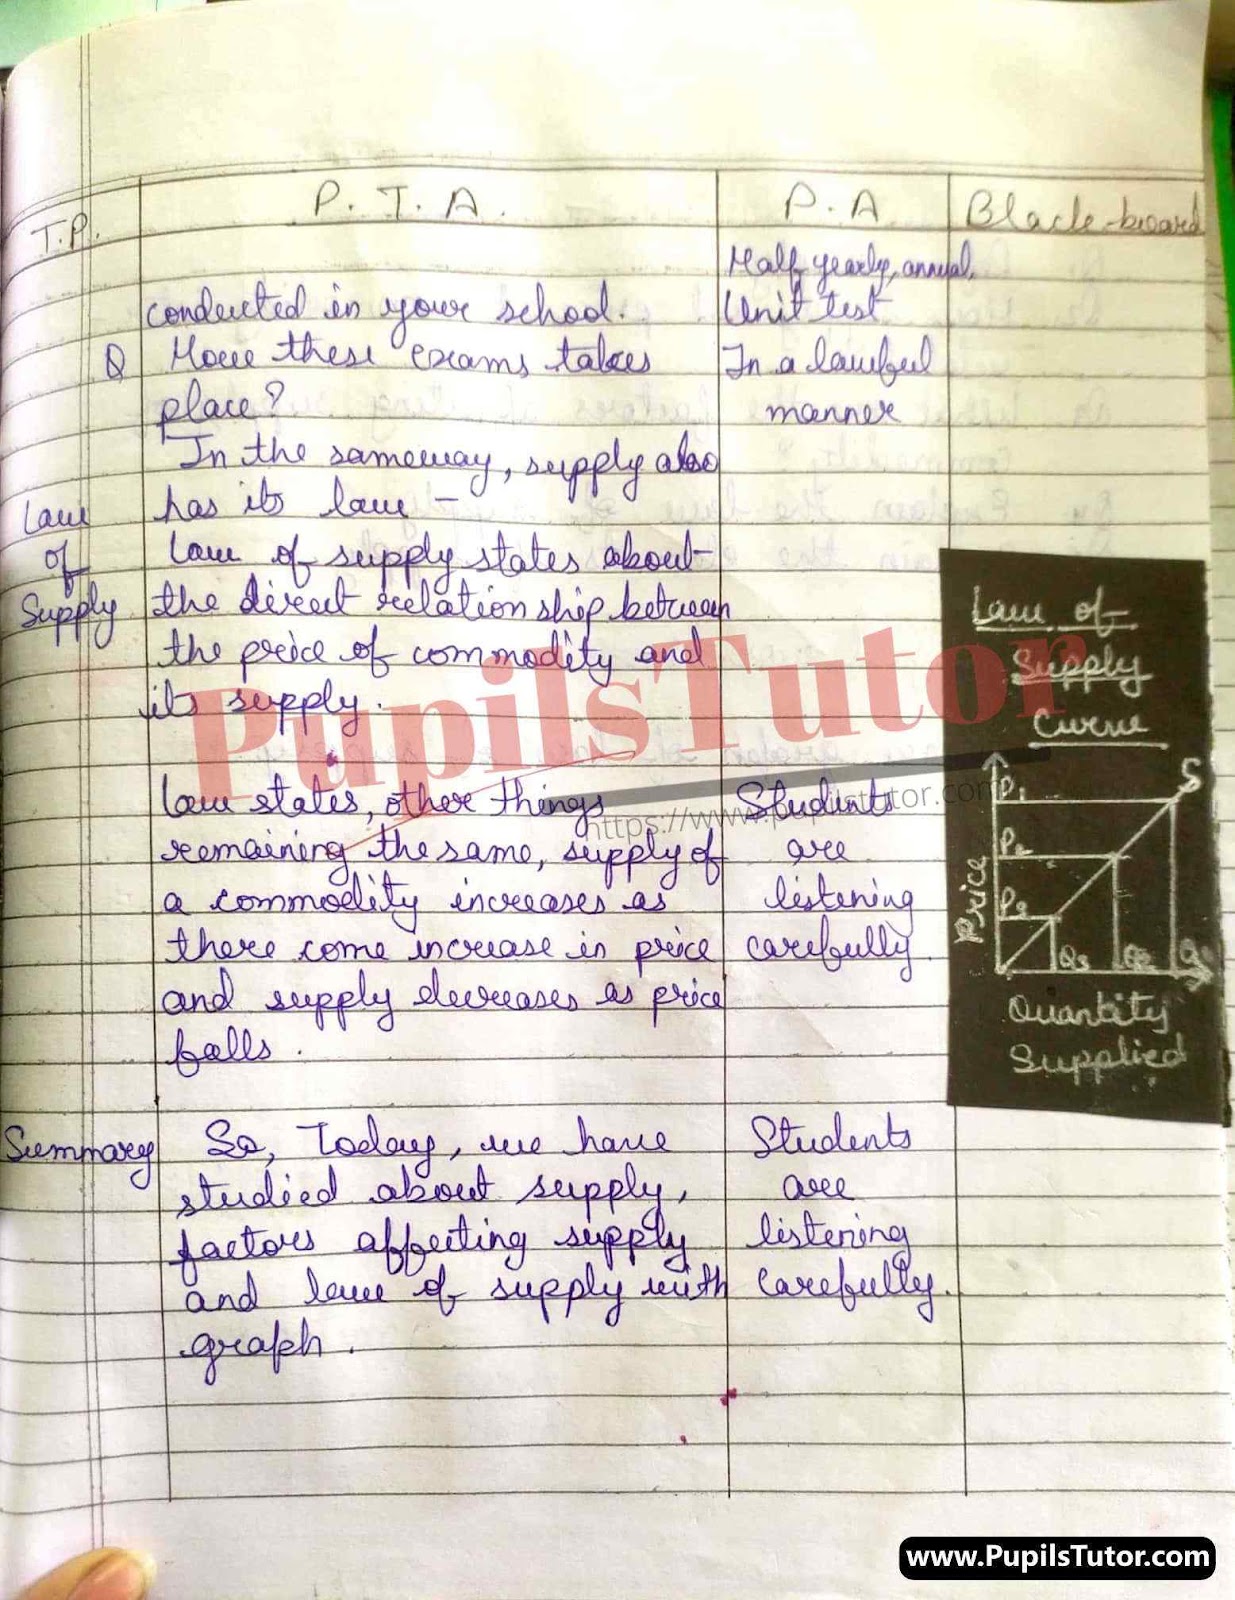 T.P.
P. T. A.
P. A
Black-board
Half yearly, annual,
conducted in your school.
Unit test
Q How these exams takes
In a lawful
place?
manner
In the sameway, supply also
has its law -
Law
of
Supply
law of supply states about
the direct relationship between
the price of commodity and
its supply.
law states, other things
remaining the same, supply of
a commodity increases as
there come increase in price
and supply decreases as price
falls.
Students
are
listening
carefully.
Law of
Supply
Curve
S
P1
P2
P3
Price
Q3
Q2
Q1
Quantity
Supplied
Summary
So, Today, we have
studied about supply,
factors affecting supply
and law of supply with
graph.
Students
are
listening
carefully.
PupilsTutor
https://www.pupilstutor.com
www.PupilsTutor.com